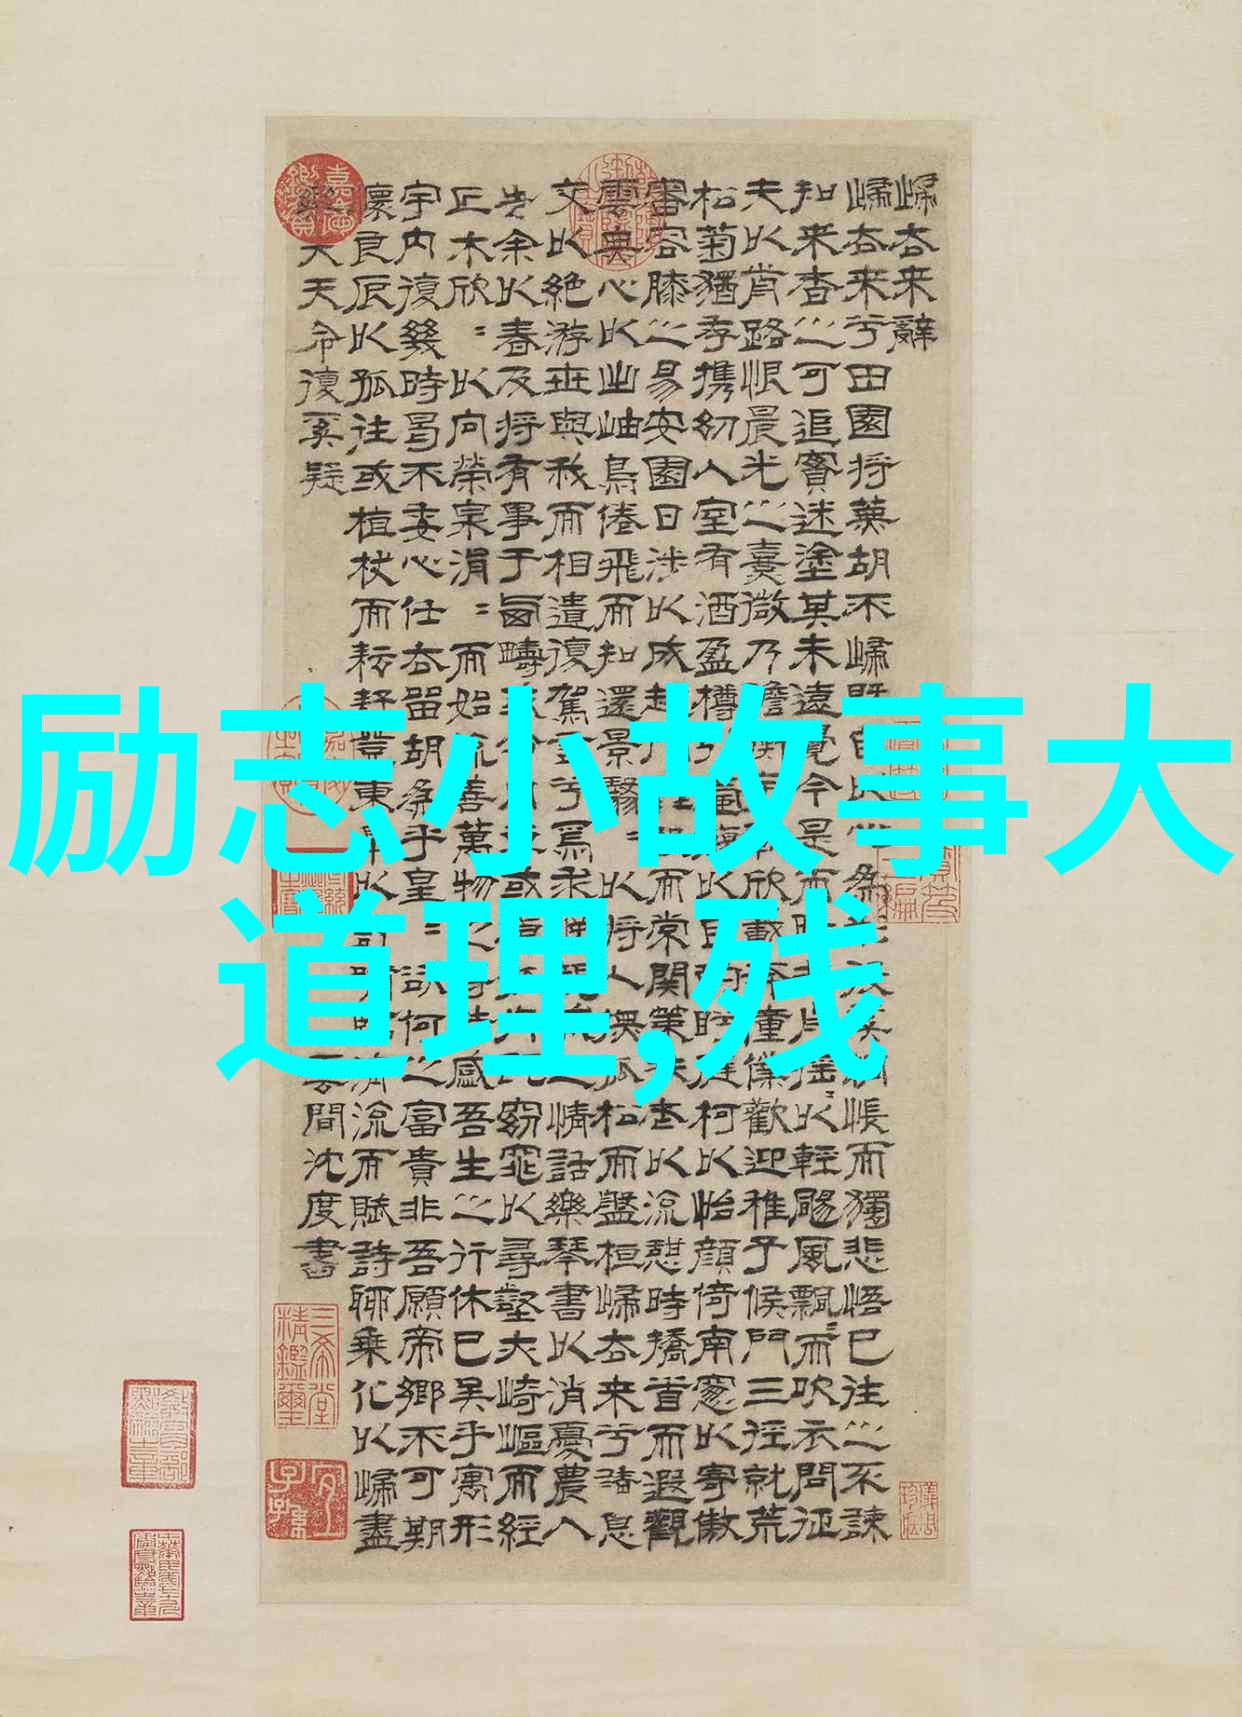 励志小故事大
道理,残
歸去來辭
歸去來兮田園將蕪胡不歸既自以心為形役奚惆悵而獨悲悟已往之不諫
知來者之可追實迷塗其未遠覺今是而昨非舟搖〻以輕颺風飄〻而吹衣問征
夫以前路恨晨光之熹微乃瞻衡宇載欣載奔僮僕歡迎稚子候門三徑就荒
松菊猶存攜幼入室有酒盈樽引壺觴以自酌眄庭柯以怡顏倚南窗以寄傲
審容膝之易安園日涉以成趣門雖設而常關策扶老以流憩時矯首而遐觀
雲無心以出岫鳥倦飛而知還景翳〻以將入撫孤松而盤桓歸去來兮請息
交以絕游世與我而相遺復駕言兮焉求悅親戚之情話樂琴書以消憂農人
告余以春及將有事于西疇或命巾車或棹孤舟既窈窕以尋壑亦崎嶇而經
丘木欣〻以向榮泉涓〻而始流善萬物之得時感吾生之行休已矣乎寓形
宇內復幾時曷不委心任去留胡為乎皇〻欲何之富貴非吾願帝鄉不可期
懷良辰以孤往或植杖而耘耔登東皋以舒嘯臨清流而賦詩聊乘化以歸盡
樂夫天命復奚疑
雲間沈度書
三希堂精鑑璽
宜子孫